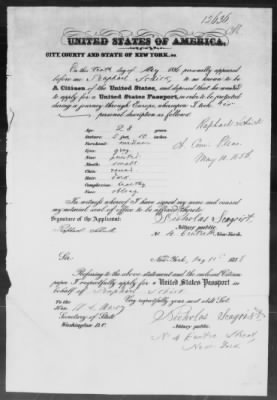 12636
UNITED STATES OF AMERICA,
CITY, COUNTY AND STATE OF NEW YORK, ss.
On this Tenth day of May 1856 personally appeared
before me Raphael Schirk to me known to be
A Citizen of the United States, and deposed that he wanted
to apply for a United States Passport, in order to be protected
during a journey through Europe, whereupon I took his
personal description as follows:
Age,
Stature, 5 10 inches
Forehead, medium
Eyes, gray
Nose, pointed
Mouth, small
Chin, round
Hair,
Complexion, healthy
Face, oblong
May 10 1856
In witness whereof I have signed my name and caused
my notarial seal of office to be affixed
Signature of the Applicant: Nicholas
Notary public
New-York.
Sir, New-York, May 10th 1856
Referring to the above statement and the enclosed Citizen
paper I respectfully apply for a United States Passport in
behalf of Raphael
To the Very respectfully, your most obdt. Servt.
Hon. W. L. Marcy Nicholas
Secretary of State Notary public.
Washington D.C. N. 4 Centre Street
New York